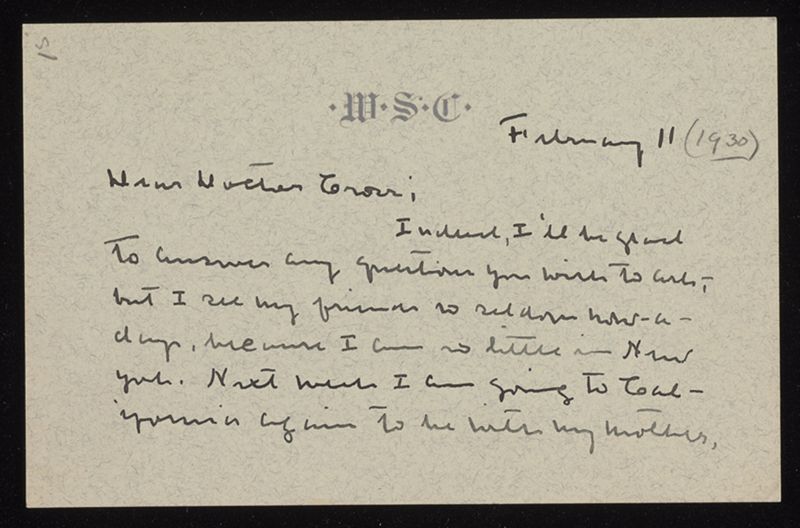 ·W·S·C·
February 11 (1930)
Dear Doctor Cross;
Indeed, I'll be glad
to answer any questions you wish to ask,
but I see my friends so seldom now-a-
days, because I am so little in New
York. Next week I am going to Cal-
ifornia again to be with my mother,